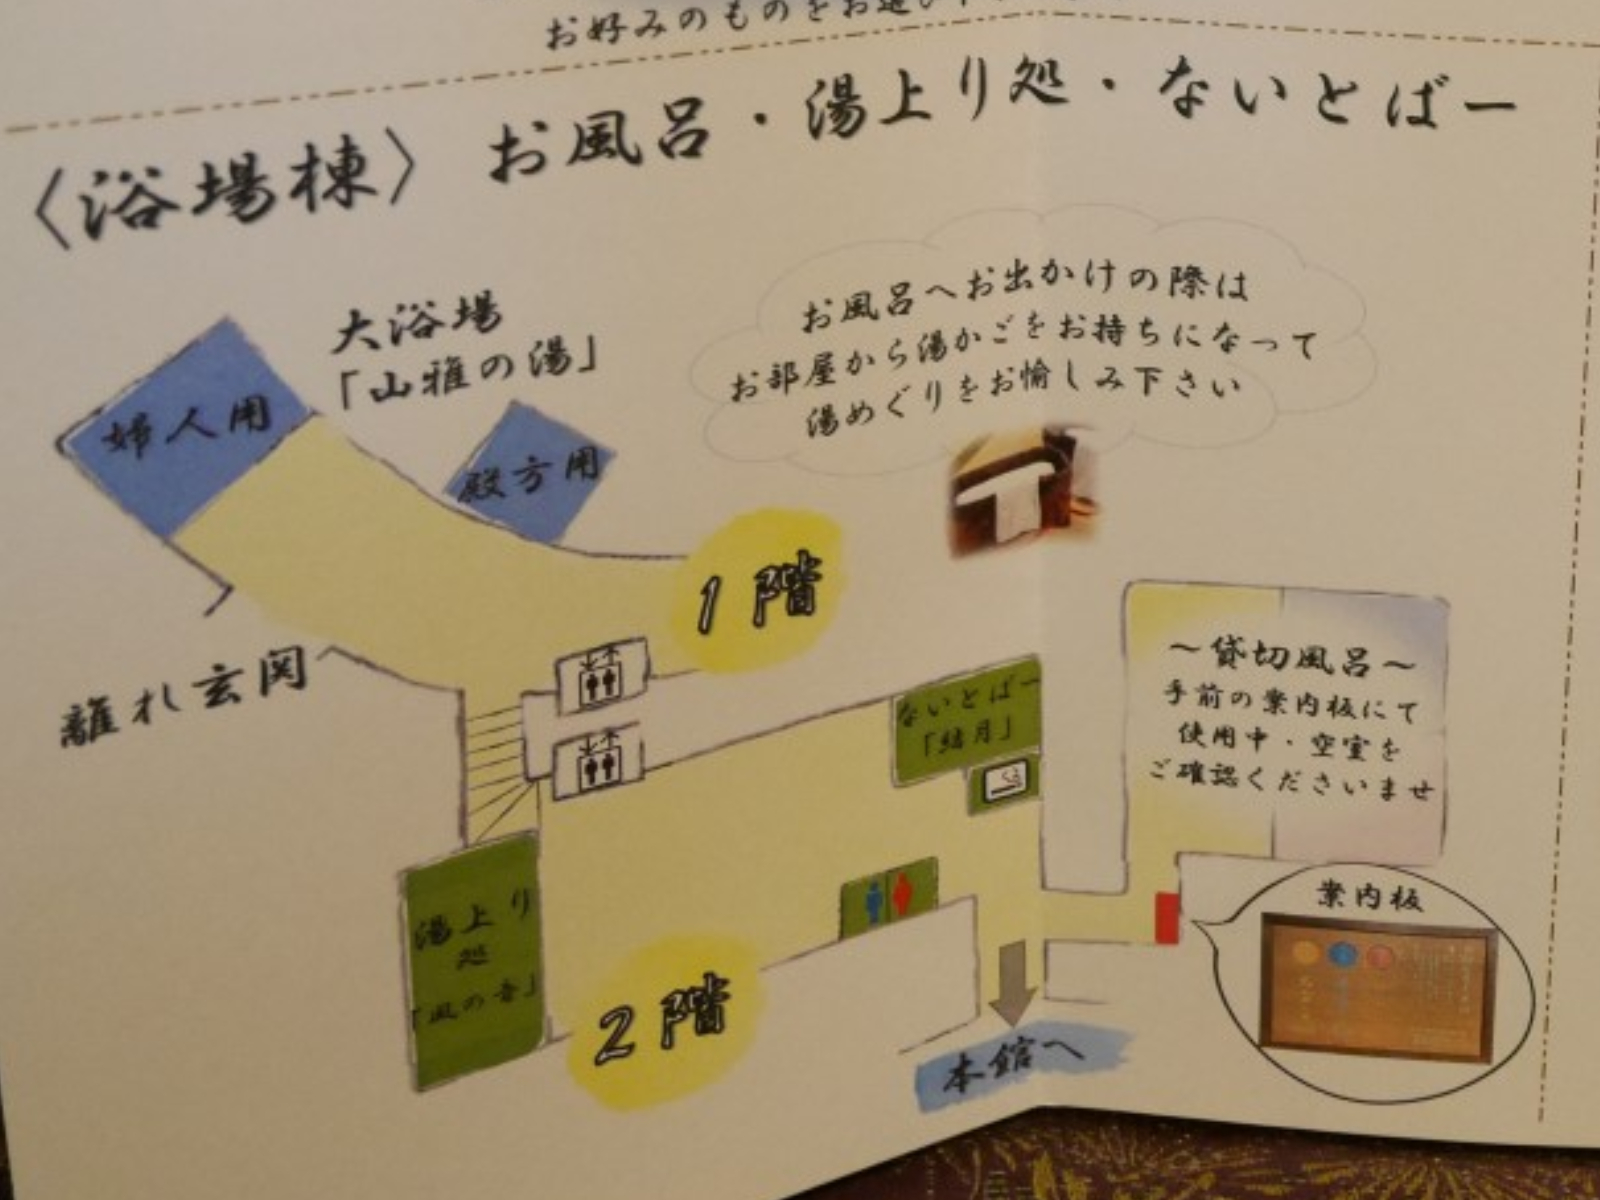 お好みのものをお選び
〈浴場棟〉お風呂・湯上り処・ないとばー
大浴場
「山雅の湯」
婦人用
殿方用
お風呂へお出かけの際は
お部屋から湯かごをお持ちになって
湯めぐりをお愉しみ下さい
1階
離れ玄関
ないとばー
「結月」
～貸切風呂～
手前の案内板にて
使用中・空室を
ご確認くださいませ
湯上り
処
「風の音」
案内板
2階
本館へ